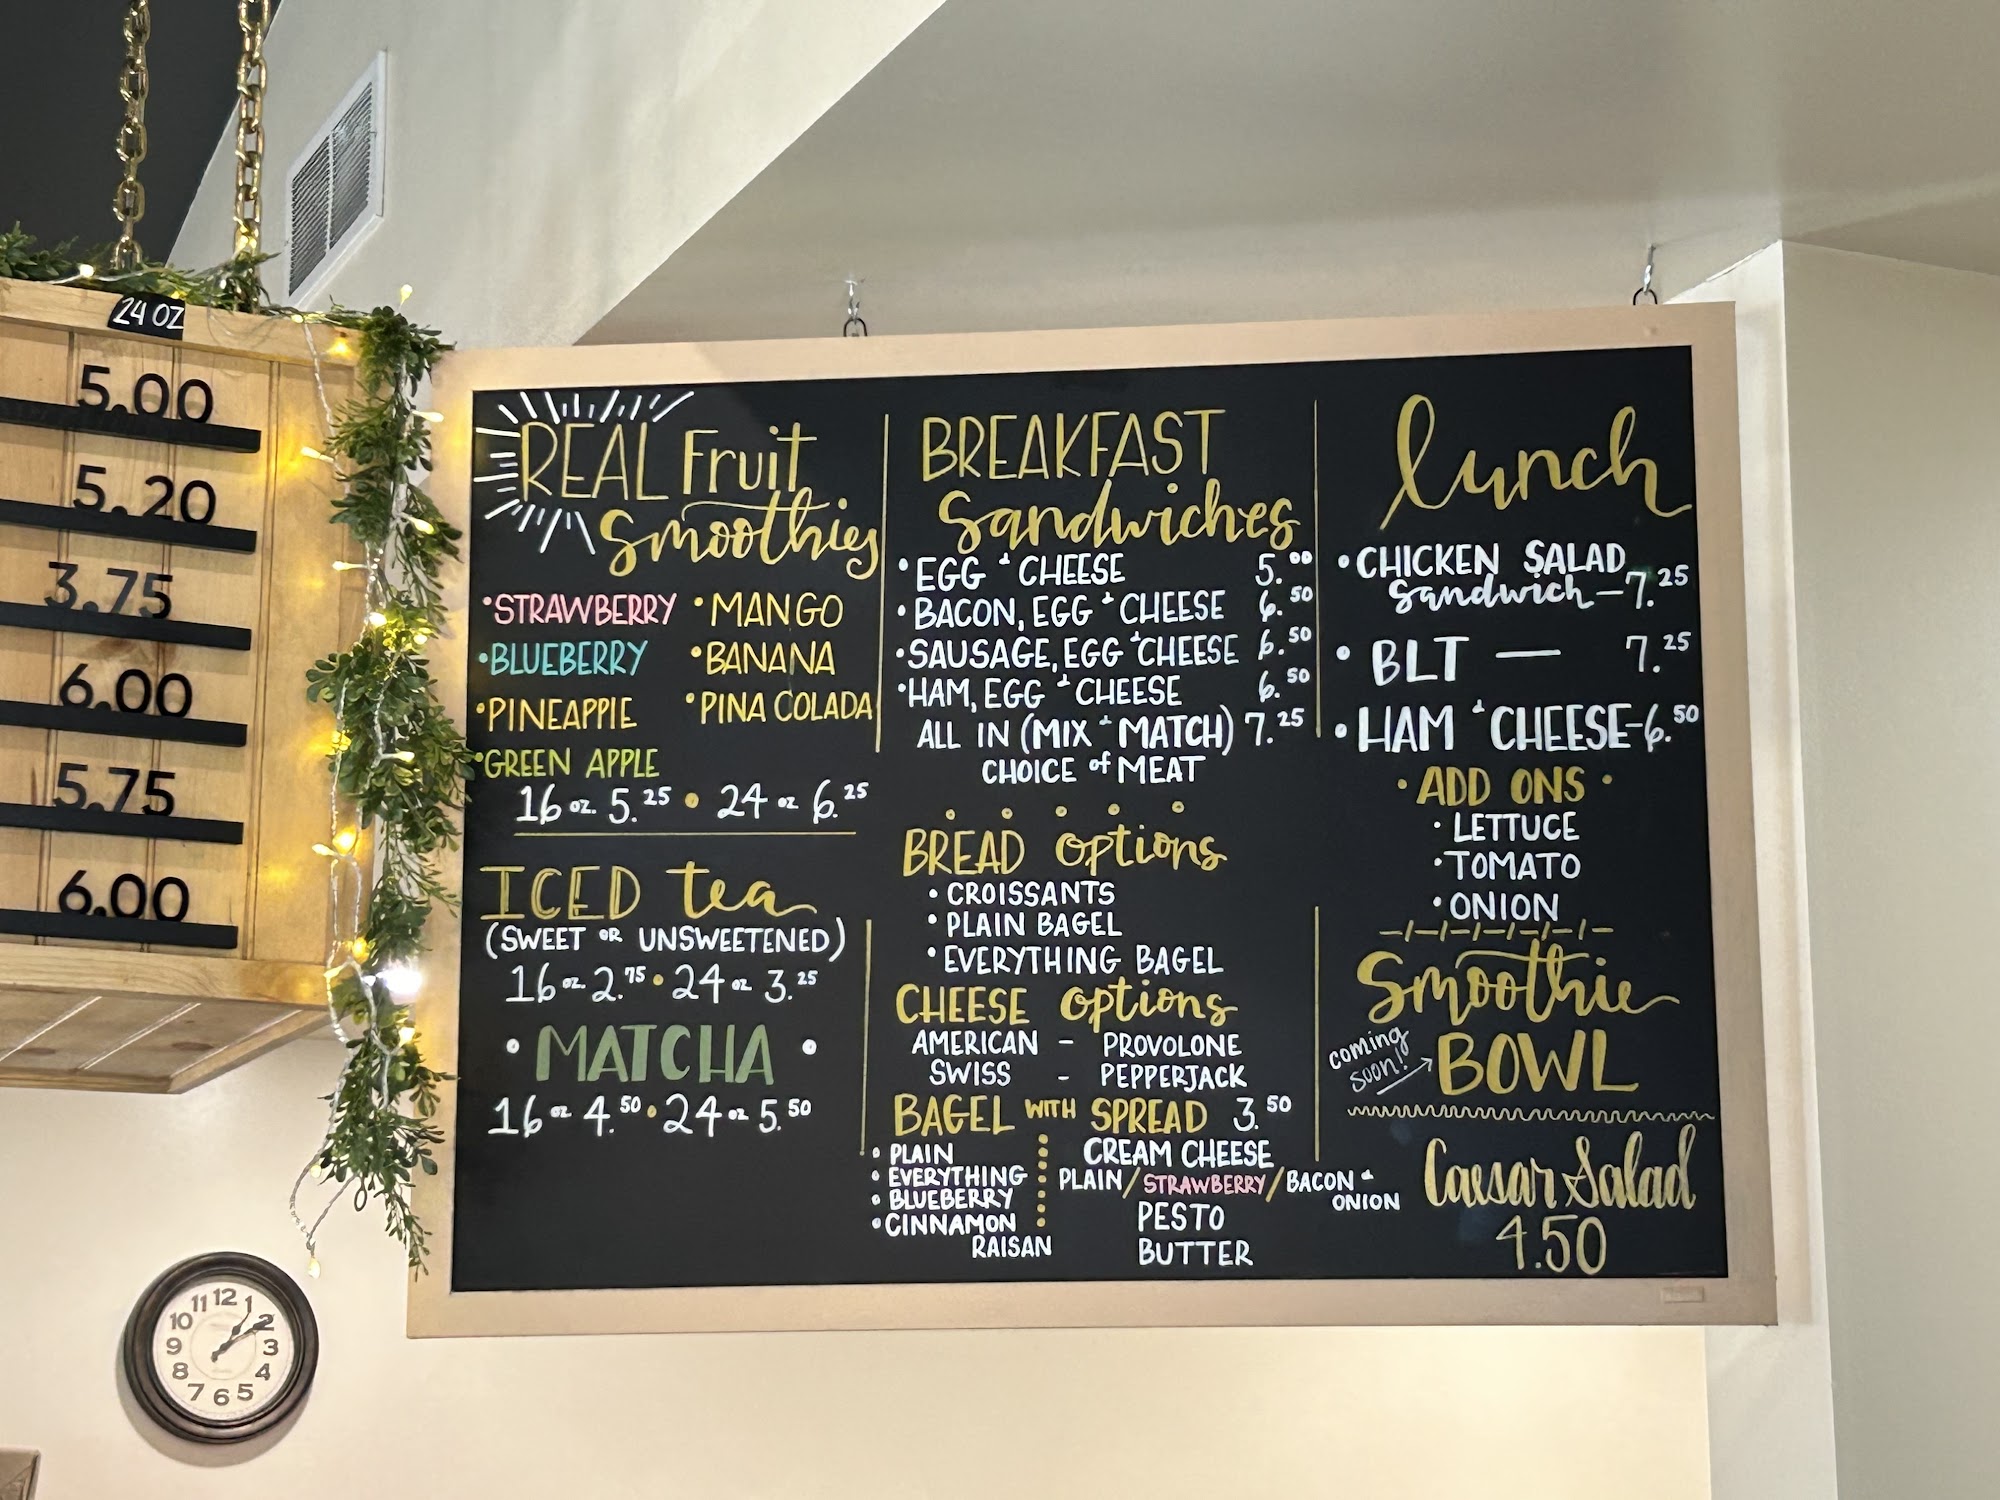 24 OZ
5.00
5.20
3.75
6.00
5.75
6.00
REAL Fruit
Smoothies
•STRAWBERRY •MANGO
•BLUEBERRY •BANANA
•PINEAPPLE •PINA COLADA
•GREEN APPLE
16 oz. 5.25 • 24 oz 6.25
ICED tea
(SWEET OR UNSWEETENED)
16 oz. 2.75 • 24 oz 3.25
• MATCHA •
16 oz 4.50 • 24 oz 5.50
BREAKFAST
Sandwiches
•EGG & CHEESE 5.00
•BACON, EGG & CHEESE 6.50
•SAUSAGE, EGG & CHEESE 6.50
•HAM, EGG & CHEESE 6.50
ALL IN (MIX & MATCH) 7.25
CHOICE of MEAT
BREAD options
• CROISSANTS
• PLAIN BAGEL
• EVERYTHING BAGEL
CHEESE options
AMERICAN - PROVOLONE
SWISS - PEPPERJACK
BAGEL WITH SPREAD 3.50
• PLAIN
• EVERYTHING
• BLUEBERRY
• CINNAMON
RAISAN
CREAM CHEESE
PLAIN/STRAWBERRY/BACON &
ONION
PESTO
BUTTER
lunch
•CHICKEN SALAD
Sandwich — 7.25
• BLT — 7.25
•HAM & CHEESE - 6.50
• ADD ONS •
• LETTUCE
•TOMATO
•ONION
Smoothie
coming
soon!
BOWL
Caesar Salad
4.50
12
1
2
3
4
5
6
7
8
9
10
11